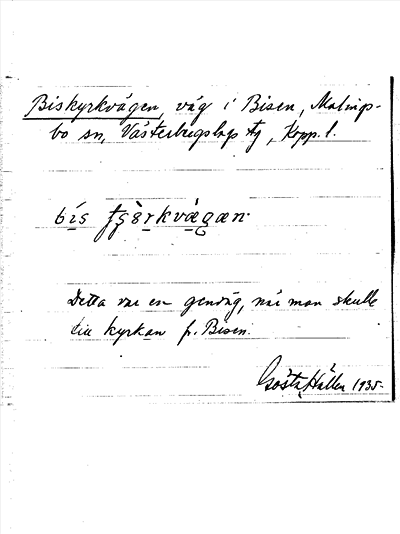 Biskyrkvägen, väg i Bisen, Malings-
bo sn, Västerbergslags tg, Kopp. l.
Detta var en genväg, när man skulle
till kyrkan fr. Bisen.
Gösta Hällen 1935.